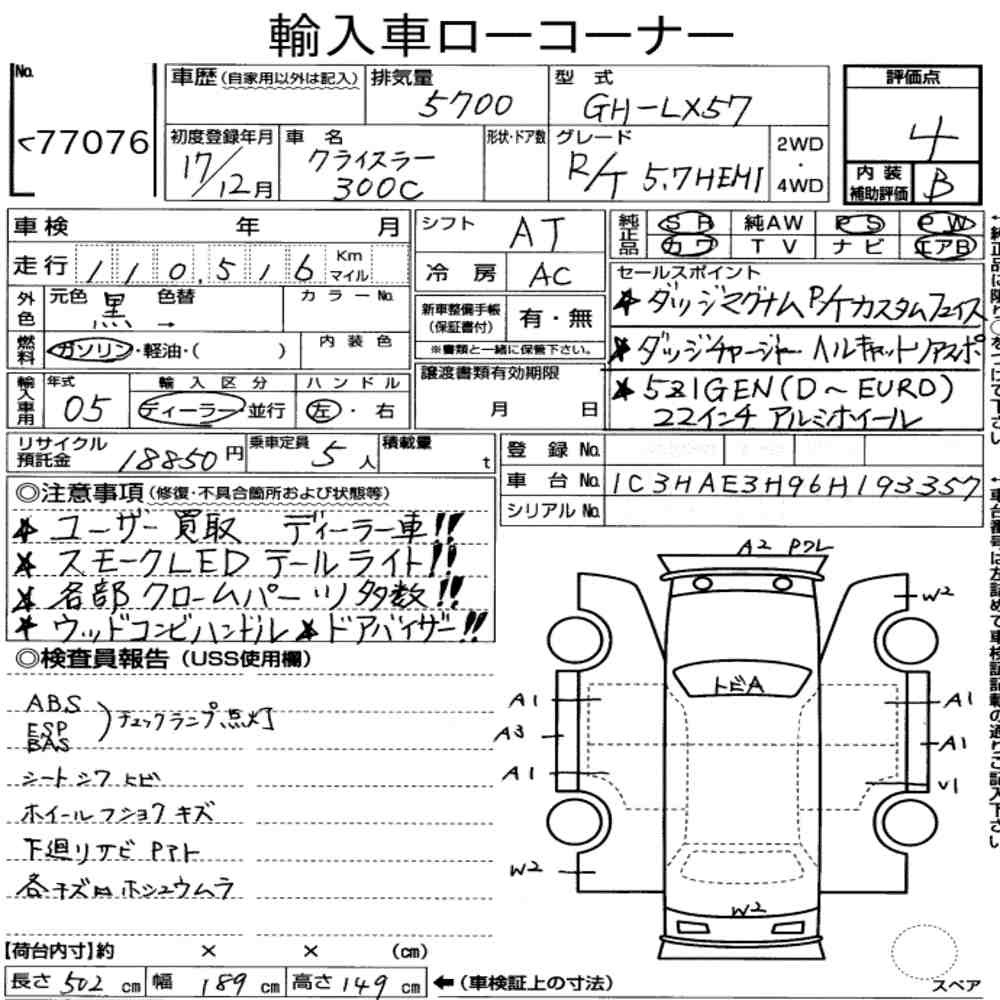 輸入車ローコーナー
No.
77076
車歴(自家用以外は記入)
排気量
5700
型式
GH-LX57
評価点
4
初度登録年月
17/12月
車名
クライスラー
300C
形状・ドア数
グレード
R/T 5.7HEMI
2WD
・
4WD
内装
補助評価
B
車検 年 月
走行 110,516 Km マイル
シフト AT
冷房 AC
純正品
SR 純AW PS PW
カワ TV ナビ エアB
セールスポイント
★ ダッジマグナムR/Tカスタムフェイス
★ ダッジチャージャー ヘルキャットリアスポ
★ 5ZIGEN(D~EURO)
22インチ アルミホイール
外色
元色 黒 色替 →
カラーNo.
燃料
ガソリン・軽油・( )
内装色
新車整備手帳
(保証書付)
有・無
※書類と一緒に保管下さい。
譲渡書類有効期限
月 日
輸入車用
年式
05
輸入区分
ディーラー 並行
ハンドル
左・右
リサイクル
預託金
18850円
乗車定員
5人
積載量
t
登録No.
車台No.
1C3HAE3H96H193357
シリアルNo.
◎注意事項(修復・不具合箇所および状態等)
★ ユーザー買取 ディーラー車!!
★ スモークLEDテールライト!!
★ 各部クロームパーツ多数!!
★ ウッドコンビハンドル★ドアバイザー!!
◎検査員報告(USS使用欄)
ABS
ESP
BAS
)チェックランプ点灯
シートシワ ヒビ
ホイールフショク キズ
下廻リサビ Pアト
各キズ凹ホシュウムラ
A2 Pワレ
W2
トビA
A1
A3
A1
W2
A1
A1
V1
W2
スペア
【荷台内寸】約 × × (cm)
長さ 502 cm 幅 189 cm 高さ 149 cm ←(車検証上の寸法)
↑純正品に限り○をつけて下さい
↑車台番号は左詰めで車検証記載の通りご記入下さい